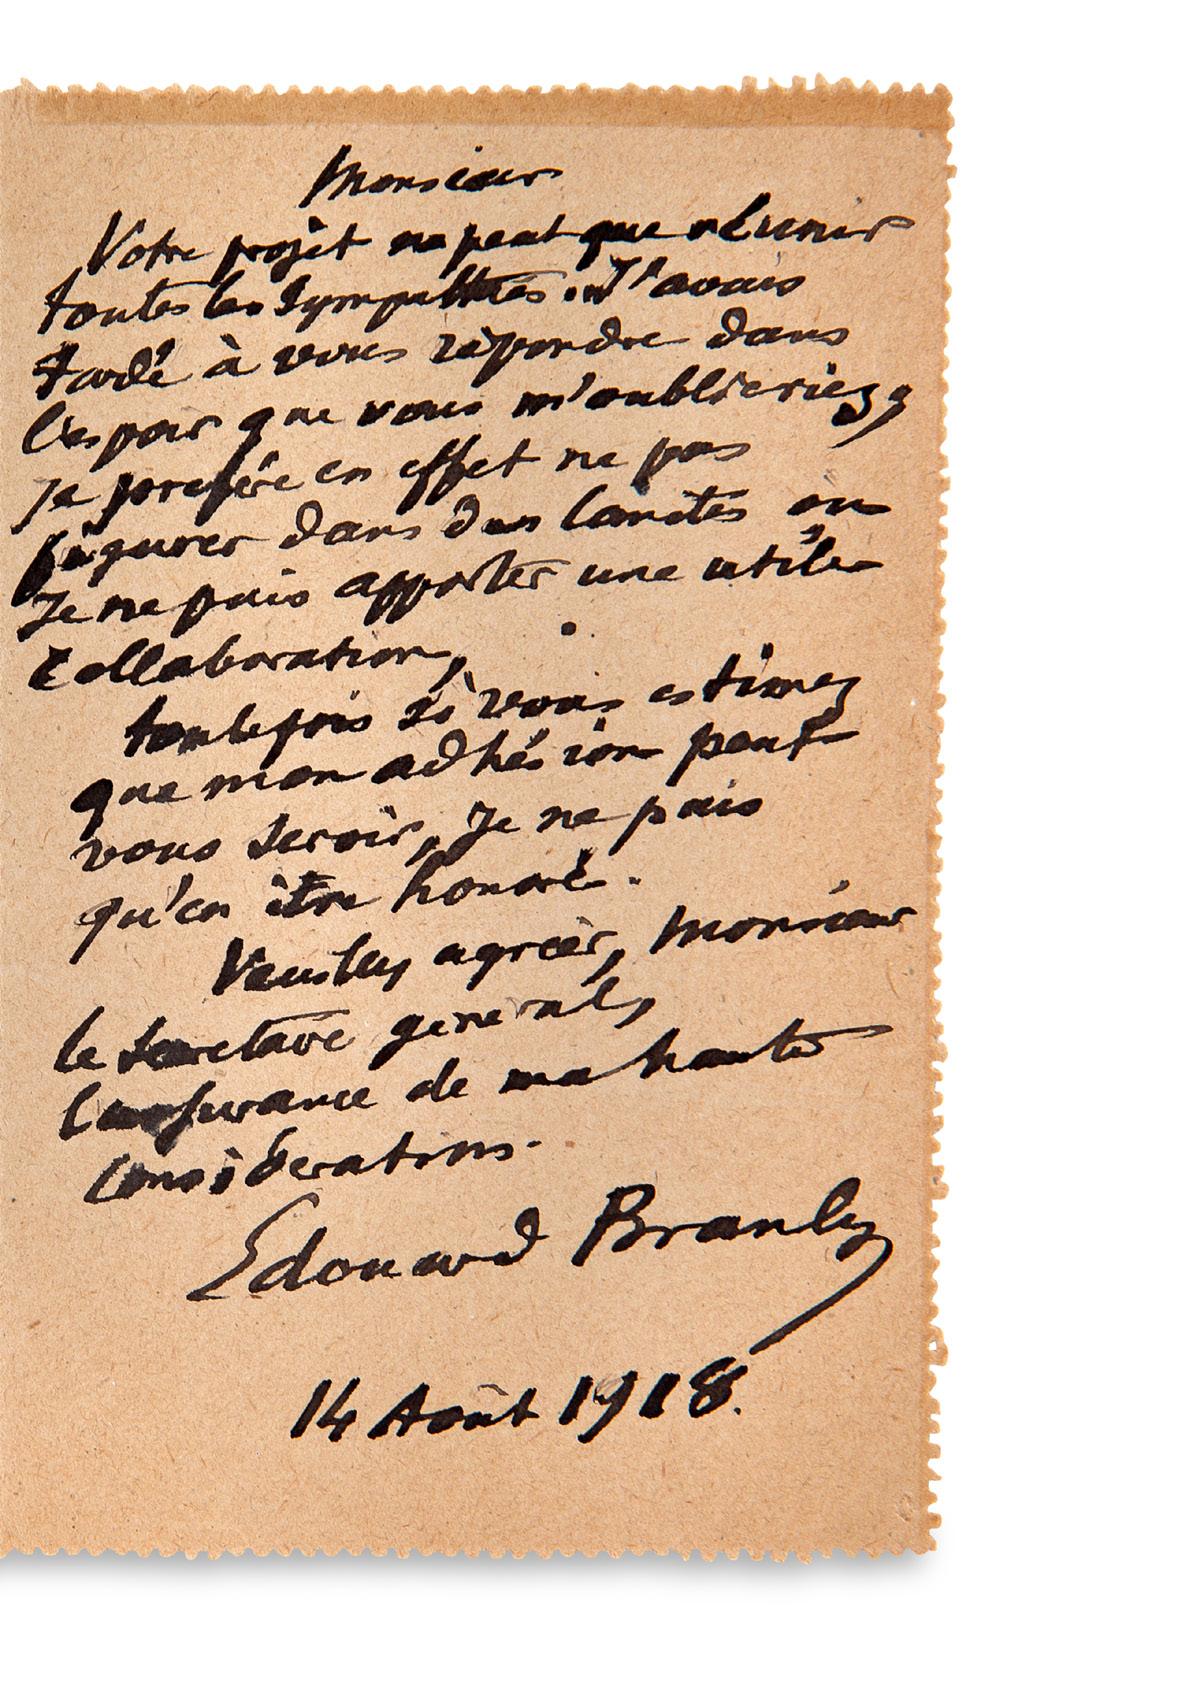 Monsieur
Votre projet ne peut que réunir
toutes les sympathies. J'avais
tardé à vous répondre dans
l'espoir que vous m'oublieriez,
Je préfère en effet ne pas
figurer dans des Comités où
Je ne puis apporter une utile
collaboration,
toutefois si vous estimez
que mon adhésion peut
vous servir, Je ne puis
qu'en être honoré.
Veuillez agréer, Monsieur
le secrétaire général,
l'assurance de ma haute
considération.
Edouard Branly
14 Août 1918.